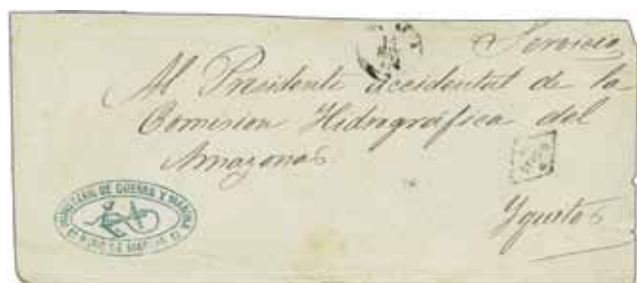 Servicio
Al Presidente accidental de la
Comision Hidrografica del
Amazonas
Yquitos
MINISTERIO DE GUERRA Y MARINA